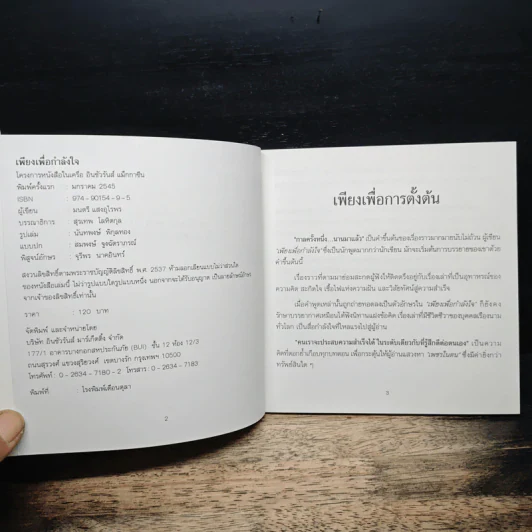 เพียงเพื่อกำลังใจ
โครงการหนังสือในเครือ อินชัวรันส์ แม็กกาซีน
พิมพ์ครั้งแรก : มกราคม 2545
ISBN : 974-90154-9-5
ผู้เขียน : มนตรี แสงอุไรพร
บรรณาธิการ : สุรเทพ โลหิตกุล
รูปเล่ม : นันทพงษ์ พิกุลทอง
แบบปก : สมพงษ์ จูงนัตราภรณ์
พิสูจน์อักษร : จุรีพร นาคอินทร์
สงวนลิขสิทธิ์ตามพระราชบัญญัติลิขสิทธิ์ พ.ศ. 2537 ห้ามลอกเลียนแบบไม่ว่าส่วนใด
ของหนังสือเล่มนี้ ไม่ว่ารูปแบบใดรูปแบบหนึ่ง นอกจากจะได้รับอนุญาต เป็นลายลักษณ์อักษร
จากเจ้าของลิขสิทธิ์เท่านั้น
ราคา : 120 บาท
จัดพิมพ์ และจำหน่ายโดย
บริษัท อินชัวรันส์ มาร์เก็ตติ้ง จำกัด
177/1 อาคารบางกอกสหประกันภัย (BUI) ชั้น 12 ห้อง 12/3
ถนนสุรวงศ์ แขวงสุริยวงศ์ เขตบางรัก กรุงเทพฯ 10500
โทรศัพท์ : 0-2634-7180-2 โทรสาร : 0-2634-7183
พิมพ์ที่ : โรงพิมพ์เดือนตุลา
2
เพียงเพื่อการตั้งต้น
"กาลครั้งหนึ่ง...นานมาแล้ว" เป็นคำขึ้นต้นของเรื่องราวมากมายนับไม่ถ้วน ผู้เขียน
'เพียงเพื่อกำลังใจ' ซึ่งเป็นนักพูดมากกว่านักเขียน มักจะเริ่มต้นการบรรยายของเขาด้วย
คำขึ้นต้นนี้
เรื่องราวที่ตามมาย่อมสะกดผู้ฟังให้ติดตรึงอยู่กับเรื่องเล่าที่เป็นอุทาหรณ์ของ
ความคิด สะกิดใจ เชื้อไฟแห่งความฝัน และวิสัยทัศน์สู่ความสำเร็จ
เมื่อคำพูดเหล่านั้นถูกถ่ายทอดลงเป็นตัวอักษรใน 'เพียงเพื่อกำลังใจ' ก็ยังคง
รักษาบรรยากาศเหมือนได้ฟังนิทานแฝงข้อคิด เรื่องเล่าที่มีชีวิตชีวาของบุคคลเรืองนาม
ทั่วโลก เป็นสื่อกำลังใจที่ไหลแรงไปสู่ผู้อ่าน
"คนเราจะประสบความสำเร็จได้ ในระดับเดียวกับที่รู้สึกดีต่อตนเอง" เป็นความ
คิดที่ตอกย้ำเกือบทุกบททอน เพื่อกระตุ้นให้ผู้อ่านแสวงหา 'เพชรในตน' ซึ่งมีค่ายิ่งกว่า
ทรัพย์สินใด ๆ
3